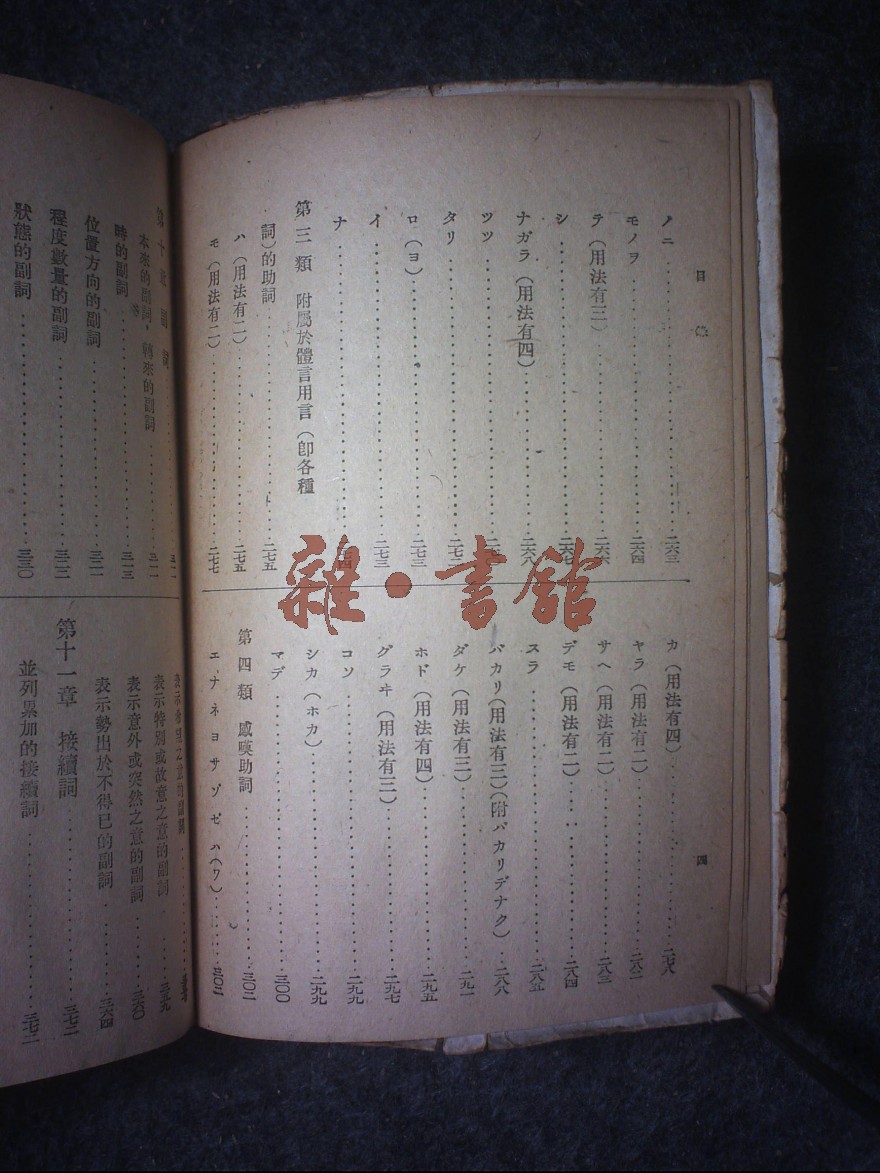 目 錄
四
ノニ……二六三
モノヲ……二六四
テ(用法有三)……二六六
シ……二六七
ナガラ(用法有四)……二六八
ツツ
タリ……二七二
ロ(ヨ)……二七三
イ……二七三
ナ
第三類 附屬於體言用言(卽各種
詞)的助詞……二七五
ハ(用法有二)……二七五
モ(用法有二)……二七七
カ(用法有四)……二七八
ヤラ(用法有二)……二八二
サヘ(用法有二)……二八三
デモ(用法有二)……二八四
スラ……二八五
バカリ(用法有三)(附バカリデナク)……二八八
ダケ(用法有三)……二九一
ホド(用法有四)……二九五
グラヰ(用法有三)……二九七
コソ……二九九
シカ(ホカ)……二九九
マデ……三〇〇
第四類 感嘆助詞……三〇二
エナネヨサゾゼハ(ワ)……三〇二
第十章 副詞
本來的副詞，轉來的副詞……三一一
時的副詞……三一三
位置方向的副詞……三二一
程度數量的副詞……三二二
狀態的副詞……三三〇
表示特別或故意之意的副詞
表示意外或突然之意的副詞……三六〇
表示勢出於不得已的副詞……三六四
第十一章 接續詞……三七二
並列累加的接續詞……三七二
雜·書館